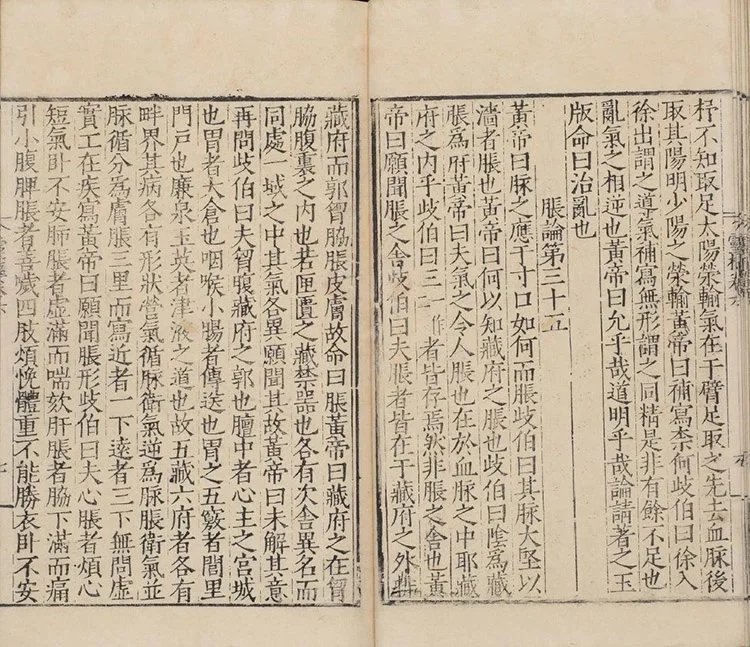 杼不知取足太陽滎輸氣在于臂足取之先去血脉後
取其陽明少陽之滎輸黃帝曰補寫柰何歧伯曰徐入
徐出謂之導氣補寫無形謂之同精是非有餘不足也
亂氣之相逆也黃帝曰允乎哉道明乎哉論請著之玉
版命曰治亂也
脹論第三十五
黃帝曰脉之應于寸口如何而脹歧伯曰其脉大堅以
濇者脹也黃帝曰何以知藏府之脹也歧伯曰陰爲藏
脹爲府黃帝曰夫氣之令人脹也在於血脉之中耶藏
府之內乎歧伯曰三一作者皆存焉然非脹之舍也黃
帝曰願聞脹之舍歧伯曰夫脹者皆在于藏府之外排
藏府而郭胷脇脹皮膚故命曰脹黃帝曰藏府之在胷
脇腹裏之內也若匣匱之藏禁器也各有次舍異名而
同處一域之中其氣各異願聞其故黃帝曰未解其意
再問歧伯曰夫胷腹藏府之郭也膻中者心主之宮城
也胃者大倉也咽喉小腸者傳送也胃之五竅者閭里
門戶也廉泉玉英者津液之道也故五藏六府者各有
畔界其病各有形狀營氣循脉衛氣逆爲脉脹衛氣並
脉循分爲膚脹三里而寫近者一下遠者三下無問虛
實工在疾寫黃帝曰願聞脹形歧伯曰夫心脹者煩心
短氣卧不安肺脹者虛滿而喘欬肝脹者脇下滿而痛
引小腹脾脹者善噦四肢煩悗體重不能勝衣卧不安